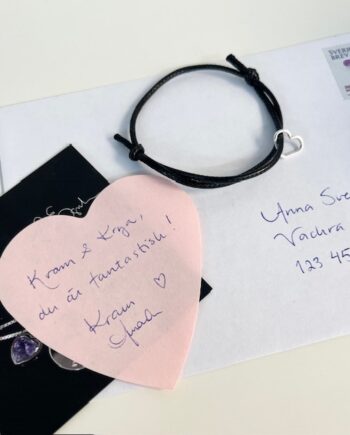 SVERI
BREV
Kram & Krya,
du är fantastisk!
Kram
Anna Sve
Vackra
123 45